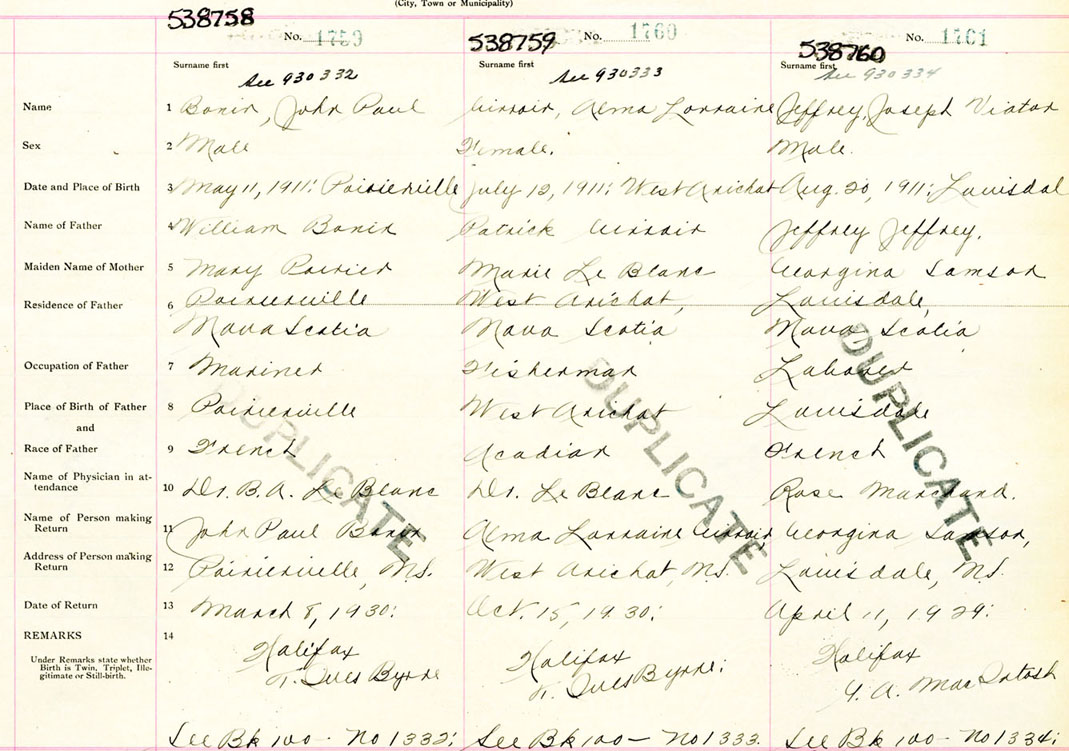 (City, Town or Municipality)
538758 No. 1759 538759 No. 1760 538760 No. 1761
Surname first Surname first Surname first
See 930332 See 930333 See 930334
Name 1 Bonin, John Paul Alma Lorraine Jeffrey, Joseph Viator
Sex 2 Male Female. Male.
Date and Place of Birth 3 May 11, 1911: Poirierville July 12, 1911; West Arichat Aug. 20, 1911; Louisdal
Name of Father 4 William Bonin Patrick Jeffrey Jeffrey.
Maiden Name of Mother 5 Mary Poirier Marie Le Blanc Georgina Samson
Residence of Father 6 Poirierville West Arichat, Louisdale,
Nova Scotia Nova Scotia Nova Scotia
Occupation of Father 7 Mariner Fisherman Laborer
Place of Birth of Father 8 Poirierville West Arichat Louisdale
and
Race of Father 9 French Acadian French
Name of Physician in at-
tendance 10 Dr. B. A. Le Blanc Dr. Le Blanc Rose Marchand.
Name of Person making
Return 11 John Paul Bonin Alma Lorraine Georgina Samson,
Address of Person making
Return 12 Poirierville, N.S. West Arichat, N.S. Louisdale, N.S.
Date of Return 13 March 8, 1930: Oct. 15, 1930: April 11, 1929:
REMARKS 14
Under Remarks state whether
Birth is Twin, Triplet, Ille-
gitimate or Still-birth.
Halifax Halifax Halifax
Byrne Byrne; MacIntosh
See Bk 100 - No 1332; See Bk 100 - No 1333. See Bk 100 - No 1334;
DUPLICATE DUPLICATE DUPLICATE